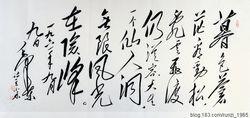 暮色蒼
茫看劲松
乱云飞渡
仍従容天生
一个仙人洞
無限風光
在險峰
一九六一年九月
九日
blog.163.com/runzi_1965